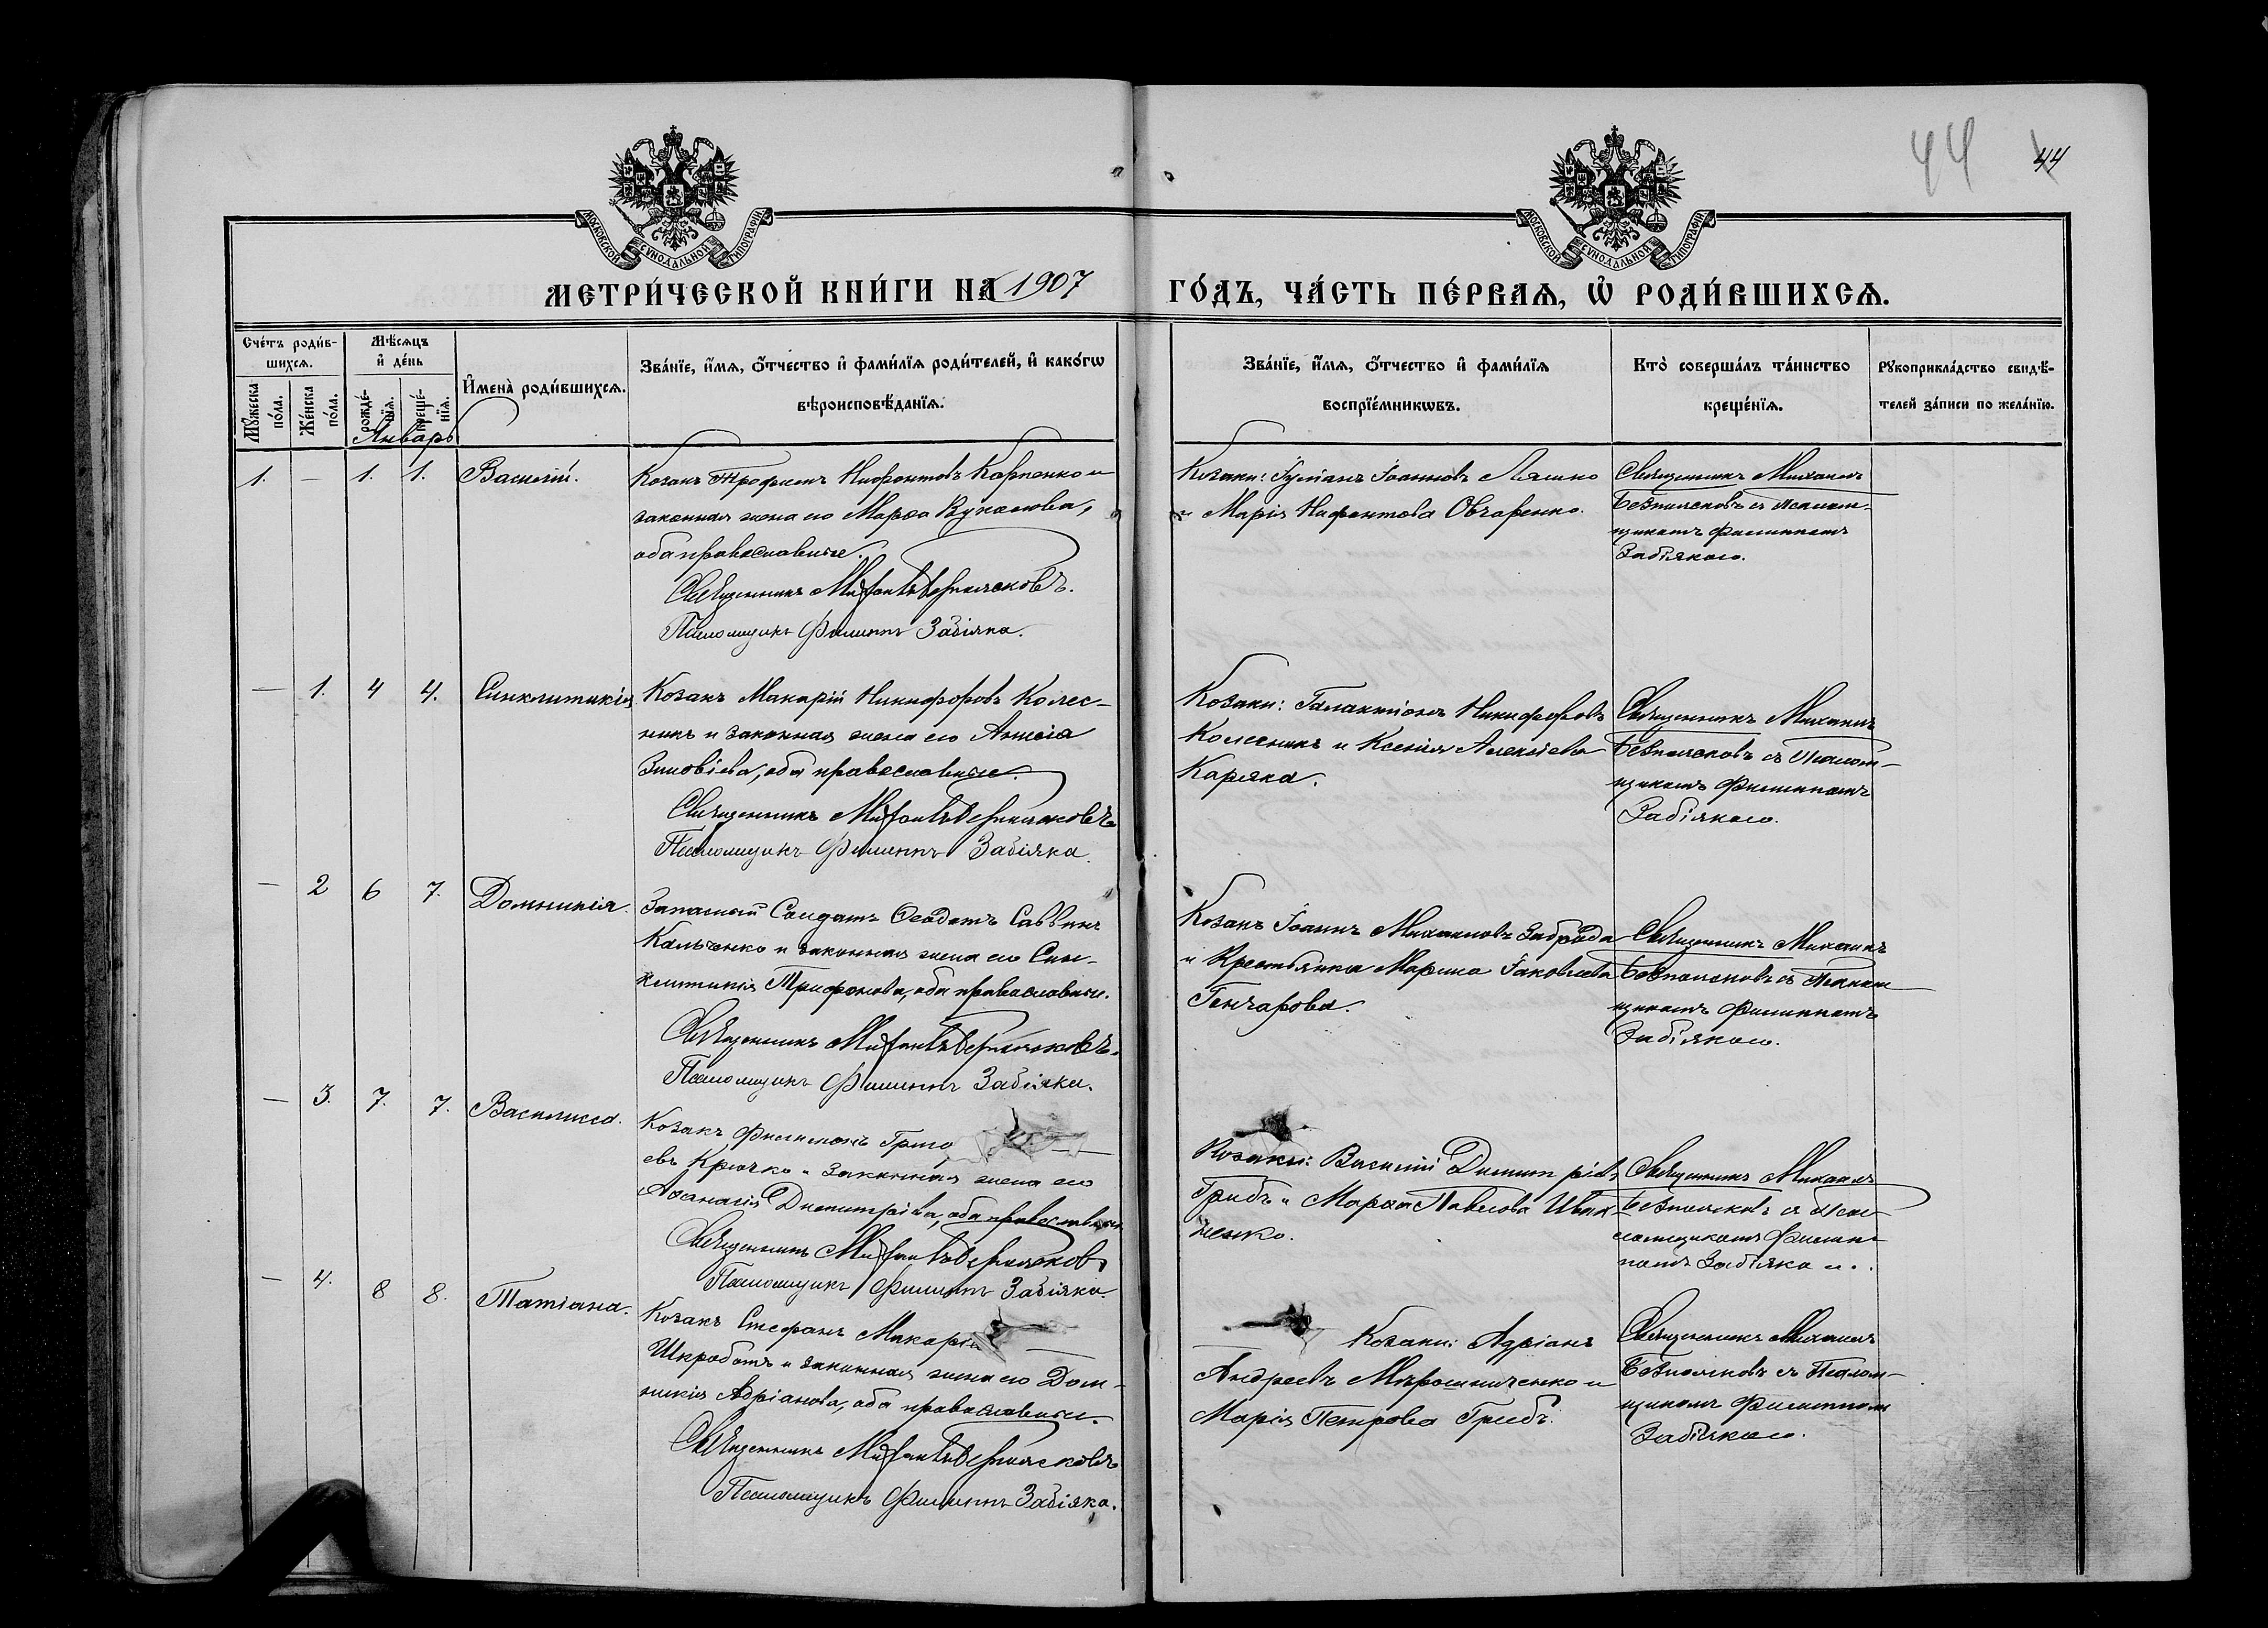 44 44
МОСКОВСКОЙ СѴНОДАЛЬНОЙ ТИПОГРАФІИ
МОСКОВСКОЙ СѴНОДАЛЬНОЙ ТИПОГРАФІИ
МЕТРИ́ЧЕСКОЙ КНИ́ГИ НА 1907 ГО́ДЪ, ЧА́СТЬ ПЕ́РВАѦ, Ѡ҆ РОДИ́ВШИХСѦ.
Сче́тъ роди́в-
шихсѧ.
Мꙋжеска по́ла.
Же́нска по́ла.
Мѣ́сѧцъ
и҆ де́нь
рожде́-
нїѧ.
креще́-
нїѧ.
И҆мена̀ роди́вшихсѧ.
Зва́нїе, и҆́мѧ, ѻ҆́тчество и҆ фами́лїѧ роди́телей, и҆ како́гѡ
вѣроисповѣ́данїѧ.
Зва́нїе, и҆́мѧ, ѻ҆́тчество и҆ фами́лїѧ
воспрїе́мникѡвъ.
Кто̀ соверша́лъ та́инство
креще́нїѧ.
Рꙋкоприкла́дство свидѣ́-
телей за́писи по жела́нїю.
Январь
1. — 1. 1. Василій.
Козакъ Трофимъ Нифонтовъ Карпенко и
законная жена его Марѳа Вуколова,
оба православные.
Священникъ
Псаломщикъ Филиппъ Забіяка.
Козаки: Іуліанъ Іоанновъ Ляшко
и Марія Нифонтова Овчаренко.
Священникъ Михаилъ
съ псалом-
щикомъ Филиппомъ
Забіякою.
— 1. 4 4. Синклитикія
Козакъ Макарій Никифоровъ Колес-
никъ и законная жена его Анисія
Зиновіева, оба православные.
Священникъ
Псаломщикъ Филиппъ Забіяка.
Козаки: Галактіонъ Никифоровъ
Колесникъ и Ксенія Алексіева
Каряка.
Священникъ Михаилъ
съ Псалом-
щикомъ Филиппомъ
Забіякою.
— 2 6 7. Домникія.
Запасный Солдатъ Ѳеодотъ Саввинъ
Кальченко и законная жена его Син-
клитикія Трифонова, оба православные.
Священникъ
Псаломщикъ Филиппъ Забіяка.
Козакъ Іоаннъ Михаиловъ Заброда
и Крестьянка Марина Іаковлева
Гончарова.
Священникъ Михаилъ
съ Псалом-
щикомъ Филиппомъ
Забіякою.
— 3. 7. 7. Василисса.
Козакъ Филимонъ Григо
евъ Крючко и законная жена его
Аѳанасія Димитріева, оба православные
Священникъ
Псаломщикъ Филиппъ Забіяка.
Козаки: Василій Димитріевъ
Грибъ и Марѳа Павлова Иван-
ченко.
Священникъ Михаилъ
съ Пса-
ломщикомъ Филип-
помъ Забіякою.
— 4. 8 8. Татіана.
Козакъ Стефанъ Макарі
Шкработъ и законная жена его Дом-
никія Адріанова, оба православные.
Священникъ
Псаломщикъ Филиппъ Забіяка.
Козаки: Адріанъ
Андреевъ Мирошниченко и
Марія Петрова Грибъ.
Священникъ Михаилъ
съ Псалом-
щикомъ Филиппомъ
Забіякою.